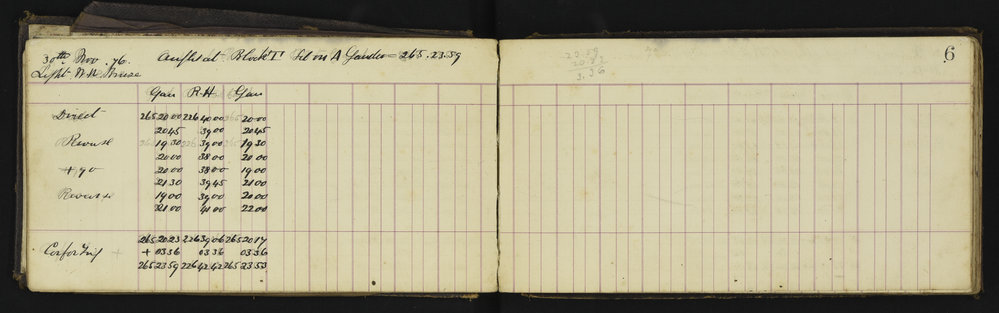 30th Nov .76. Angles at Block II Set on A Garden = 265.23.59
Light N.E.
Gar R.H. Gar
Direct 265 20 00 226 40 00 265 20 00
20 45 39 00 20 45
Reverse 265 19 30 226 39 00 265 19 30
20 00 38 00 20 00
+ 90 20 00 38 00 19 00
21 30 39 45 21 00
Reverse 19 00 39 00 20 00
21 00 41 00 22 00
265 20 23 226 39 06 265 20 17
Cor for + + 03 36 03 36 03 36
265 23 59 226 42 42 265 23 53
23.59
20 23
3.36
6